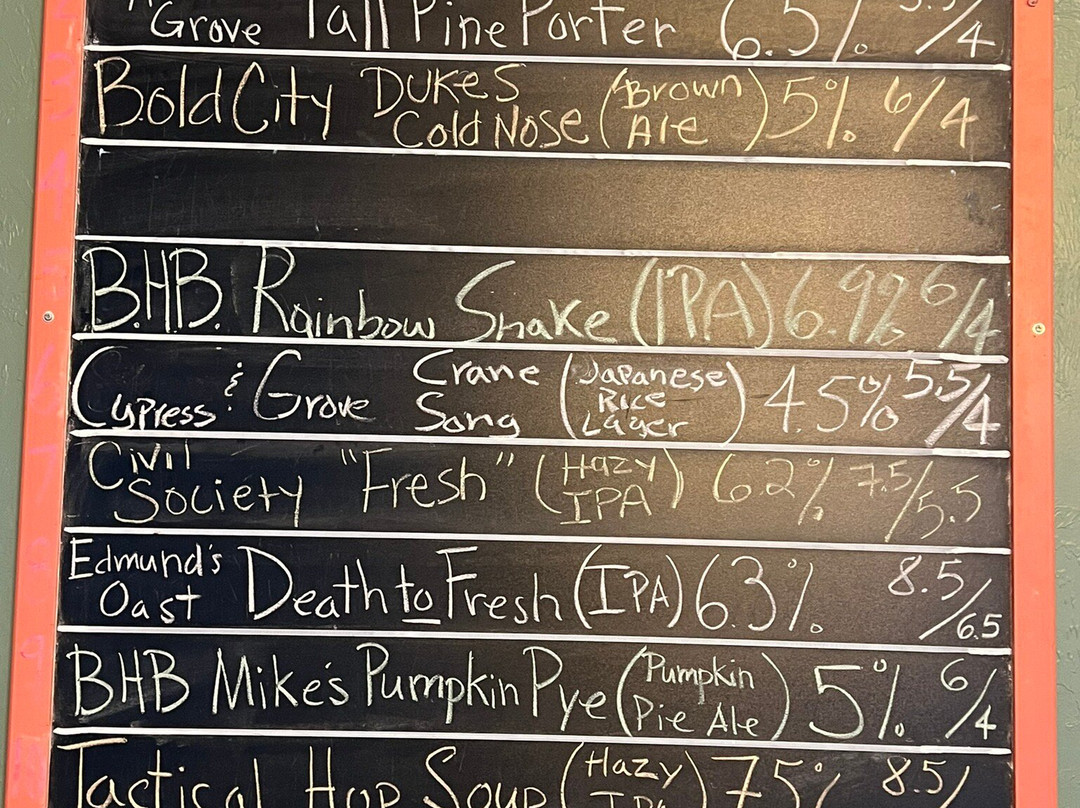 Grove Tall Pine Porter 6.5% /4
Bold City Dukes Cold Nose (Brown Ale) 5% 6/4
B.H.B. Rainbow Snake (IPA) 6.9% 6/4
Cypress & Grove Crane Song (Japanese Rice Lager) 4.5% 5.5/4
Civil Society "Fresh" (Hazy IPA) 6.2% 7.5/5.5
Edmund's Oast Death to Fresh (IPA) 6.3% 8.5/6.5
BHB Mike's Pumpkin Pye (Pumpkin Pie Ale) 5% 6/4
Tactical Hop Soup (Hazy IPA) 7.5% 8.5/